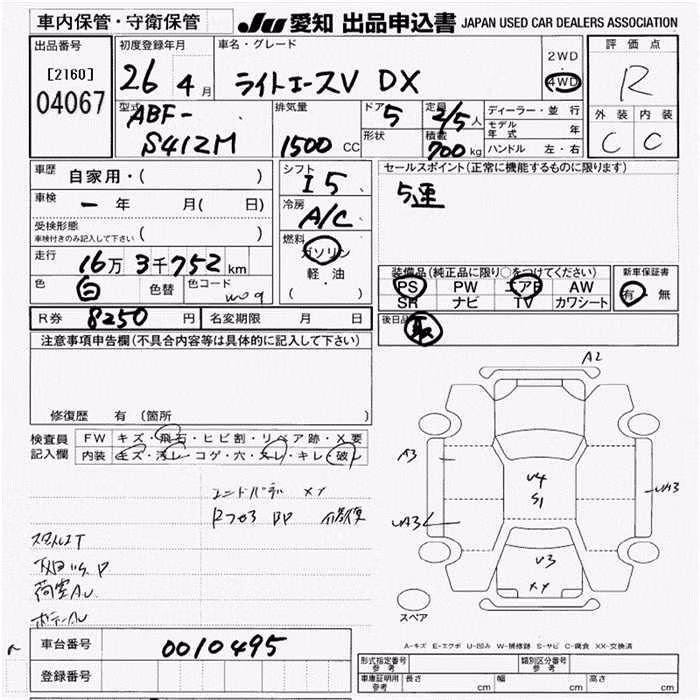 車内保管・守衛保管 JU 愛知 出品申込書 JAPAN USED CAR DEALERS ASSOCIATION
出品番号 初度登録年月 車名・グレード 評価点
[2160] 26 年 4 月 ライトエースV DX 2WD・4WD R
04067
型式 排気量 ドア 定員 ディーラー・並行 外装 内装
ABF- 5 2/5人 モデル年式 年
S412M 1500 CC 形状 積載 700 kg ハンドル 左・右 C C
車歴 自家用・( ) シフト I5 セールスポイント(正常に機能するものに限ります)
車検 一 年 月( 日) 冷房 A/C 5速
受検形態 車検付きのみ記入して下さい ( ) 燃料 ガソリン
走行 16万 3千752 km 軽・油 装備品(純正品に限り○をつけてください) 新車保証書
色 白 色替 色コード W09 ( ) PS PW エアB AW 有・無
SR ナビ TV カワシート
R券 8250 円 名変期限 月 日 後日品 取
注意事項申告欄(不具合内容等は具体的に記入して下さい)
修復歴 有 (箇所 )
検査員 FW キズ・飛石・ヒビ割・リペア跡・X要
記入欄 内装 キズ・汚レ・コゲ・穴・スレ・キレ・破レ
A2
A3
U4
S1
UA3
UA3
U3
XX
荷室AU
スペア
A-キズ E-エクボ U-凹み W-補修跡 S-サビ C-腐食 XX-交換済
車台番号 0010495
登録番号
形式指定番号 参考 類別区分番号 参考
車庫証明用 参考 長さ cm 幅 cm 高さ cm